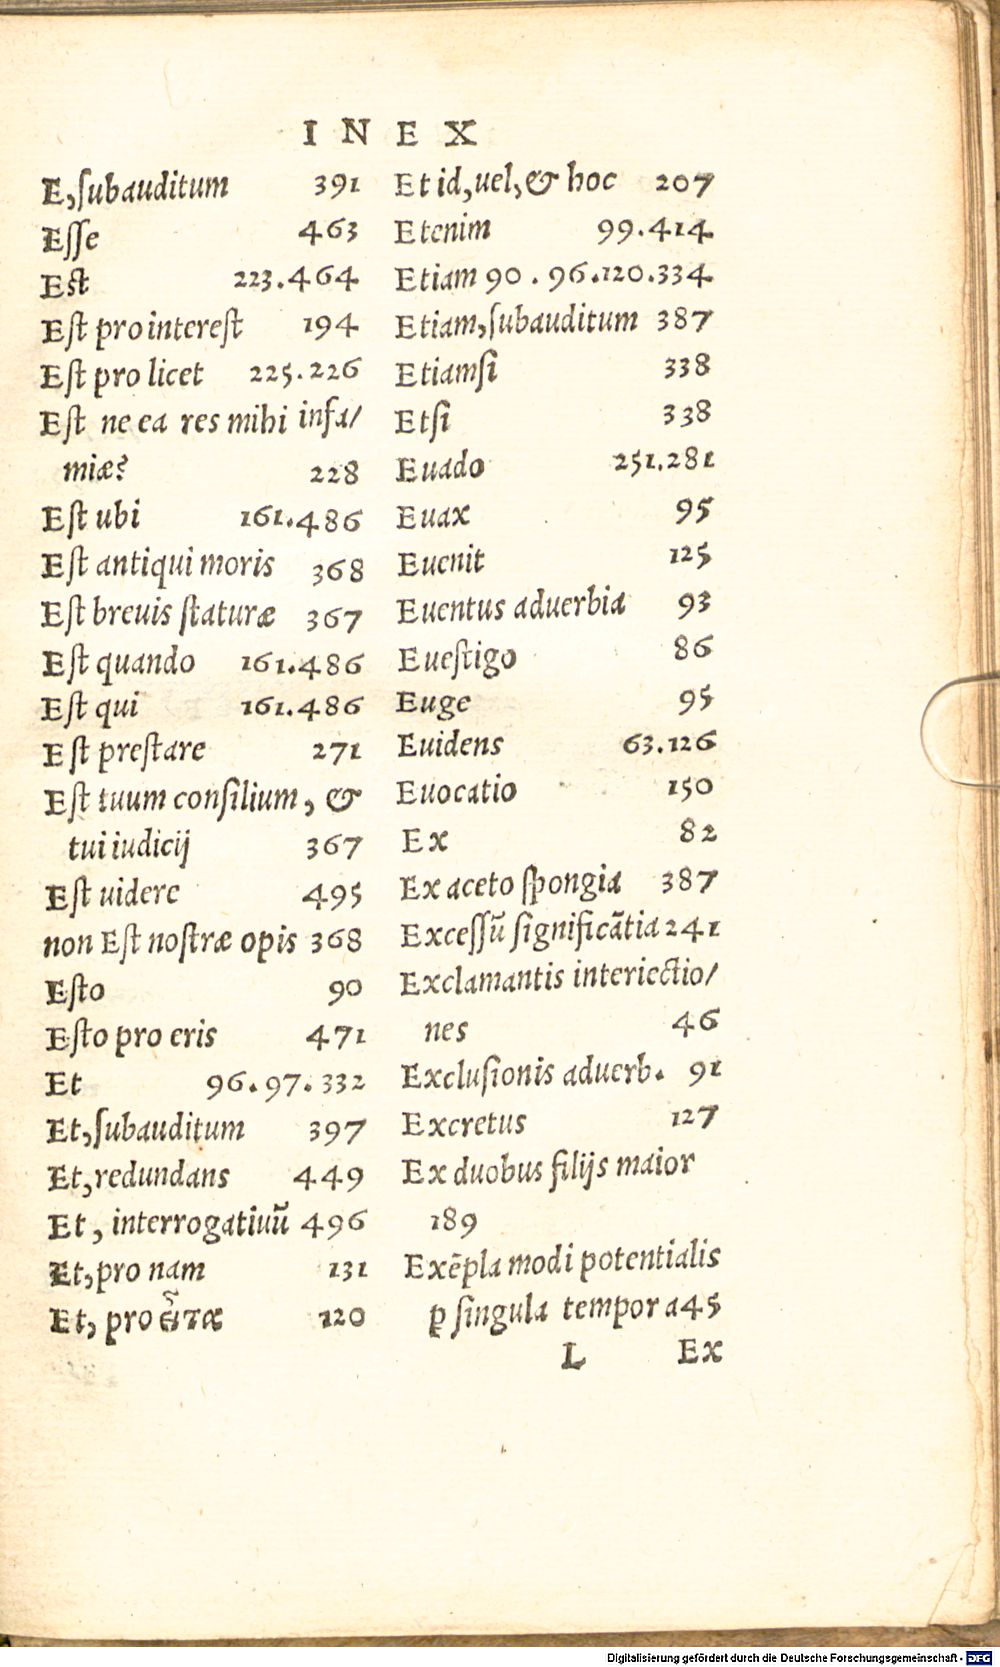 I N E X
E, ſubauditum 391
Eſſe 463
Eſt 223.464
Eſt pro intereſt 194
Eſt pro licet 225.226
Eſt ne ea res mihi infa/
miæ? 228
Eſt ubi 161.486
Eſt antiqui moris 368
Eſt breuis ſtaturæ 367
Eſt quando 161.486
Eſt qui 161.486
Eſt preſtare 271
Eſt tuum conſilium, &
tui iudicij 367
Eſt uidere 495
non Eſt noſtræ opis 368
Eſto 90
Eſto pro eris 471
Et 96.97.332
Et, ſubauditum 397
Et, redundans 449
Et, interrogatiuũ 496
Et, pro nam 131
Et, pro εἶτα 120
Et id, uel, & hoc 207
Etenim 99.414
Etiam 90.96.120.334
Etiam, ſubauditum 387
Etiamſi 338
Etſi 338
Euado 251.281
Euax 95
Euenit 125
Euentus aduerbia 93
Eueſtigo 86
Euge 95
Euidens 63.126
Euocatio 150
Ex 82
Ex aceto ſpongia 387
Exceſſũ ſignificãtia 241
Exclamantis interiectio/
nes 46
Excluſionis aduerb. 91
Excretus 127
Ex duobus filijs maior
189
Exẽpla modi potentialis
ꝑ ſingula tempora 45
L Ex
Digitalisierung gefördert durch die Deutsche Forschungsgemeinschaft - DFG